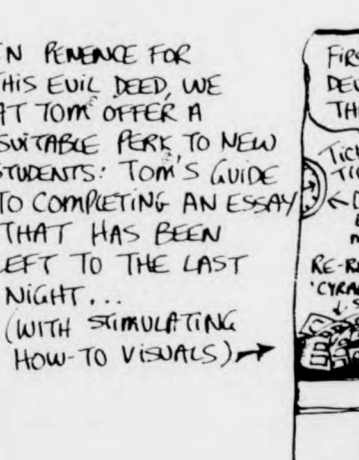 IN PENENCE FOR
THIS EVIL DEED, WE
AT TOM OFFER A
SUITABLE PERK TO NEW
STUDENTS: TOM'S GUIDE
TO COMPLETING AN ESSAY
THAT HAS BEEN
LEFT TO THE LAST
NIGHT...
(WITH STIMULATING
HOW-TO VISUALS)→
FIRS
DEV
TH
TICK
TIC
RE-R
'CYRA